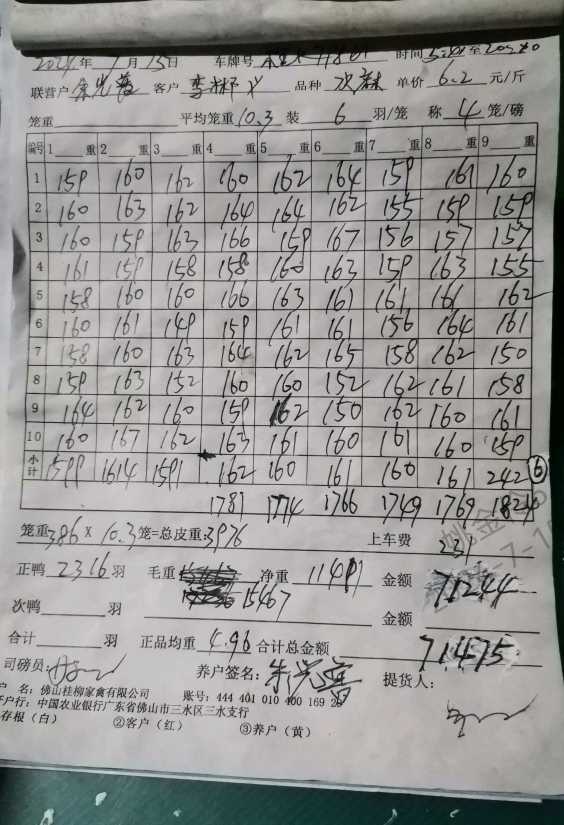 2024年7月15日 车牌号 时间 至
联营户 客户 李彬 品种 次麻 单价6.2元/斤
笼重 平均笼重10.3装 6 羽/笼 称 4 笼/磅
编号 1 重 2 重 3 重 4 重 5 重 6 重 7 重 8 重 9 重
1 159 160 162 160 162 164 159 161 160
2 160 163 162 164 164 162 155 159 159
3 160 159 163 166 159 167 156 157 157
4 161 159 158 158 160 163 159 163 155
5 158 160 160 166 163 161 161 161 162
6 160 161 149 159 161 161 156 164 161
7 158 160 163 164 162 165 158 162 150
8 159 163 152 160 160 152 162 161 158
9 164 162 160 159 162 150 162 160 161
10 160 167 162 163 161 160 161 160 159
小计 1599 1614 1591 162 160 161 160 161 242 ⑥
1781 1774 1766 1749 1769 1824
笼重386×10.3笼=总皮重:3976 上车费 231
正鸭2316羽 毛重 净重11491 金额 71244
15467
次鸭 羽 金额
合计 羽 正品均重 4.96 合计总金额 71475
司磅员: 养户签名: 提货人:
户 名：佛山桂柳家禽有限公司 账号：444 401 010 400 169 2
开户行：中国农业银行广东省佛山市三水区三水支行
存根（白） ②客户（红） ③养户（黄）